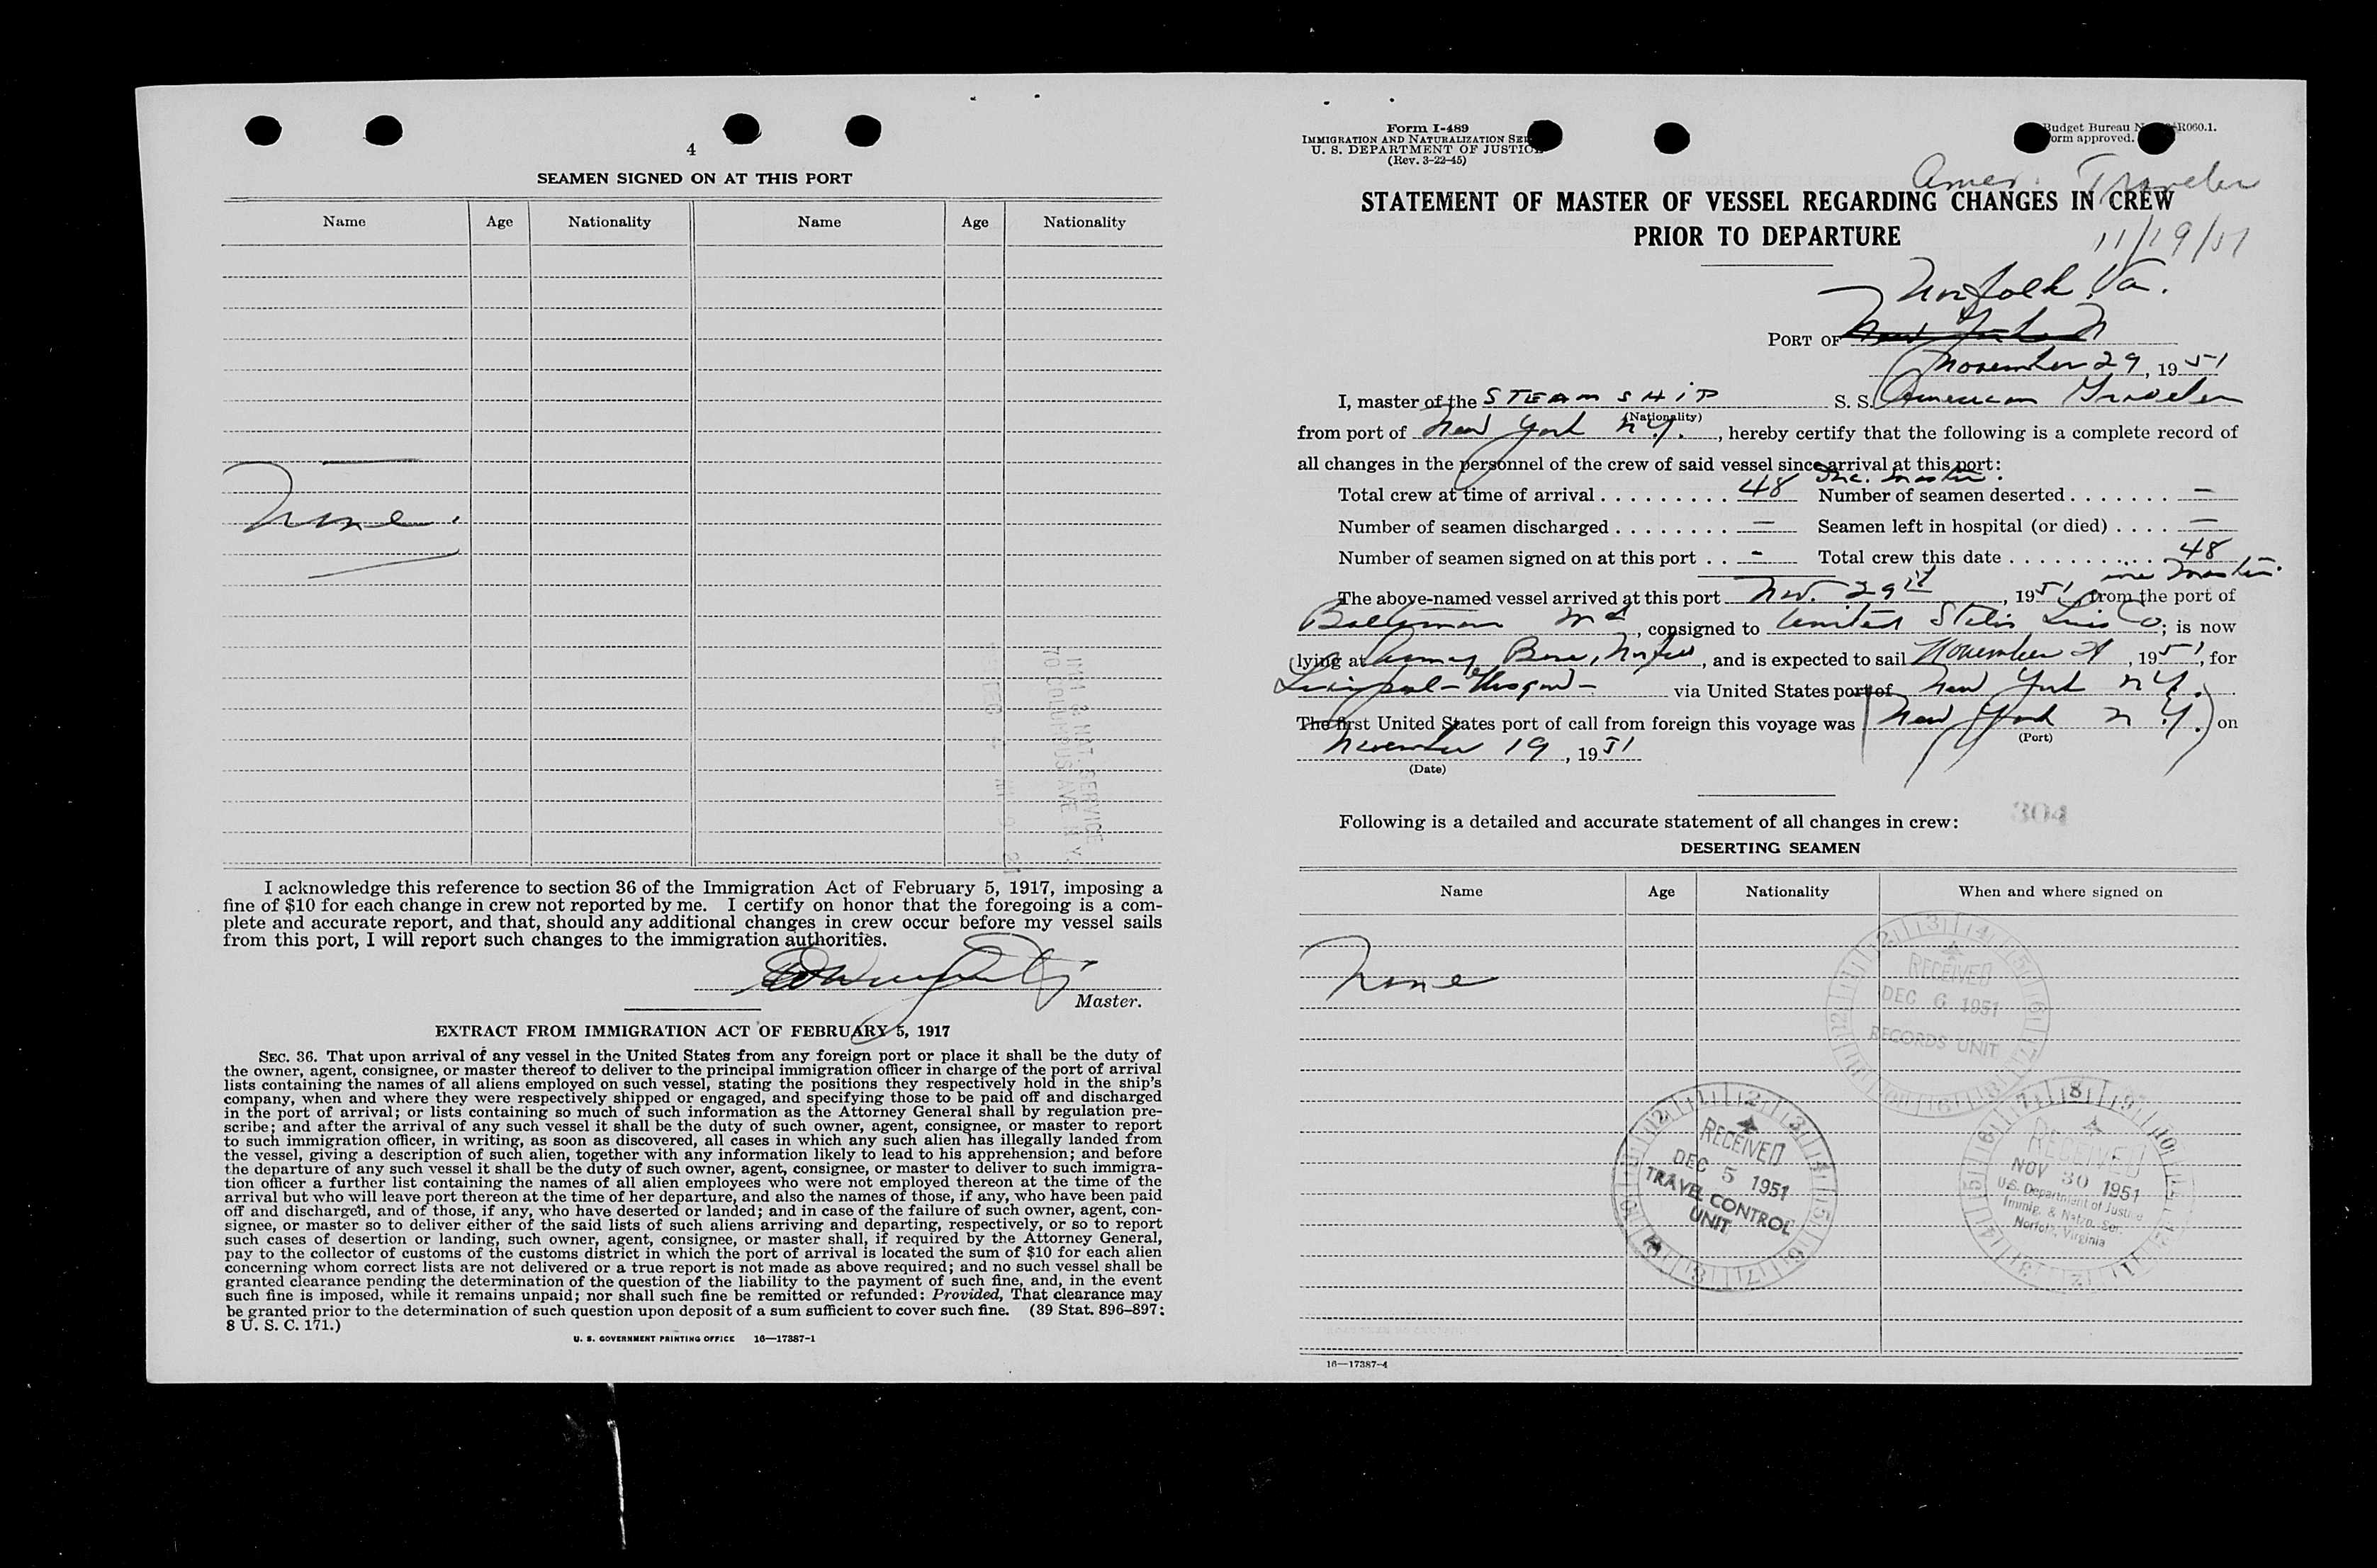 4
SEAMEN SIGNED ON AT THIS PORT
Name Age Nationality Name Age Nationality
None.
I acknowledge this reference to section 36 of the Immigration Act of February 5, 1917, imposing a
fine of $10 for each change in crew not reported by me. I certify on honor that the foregoing is a com-
plete and accurate report, and that, should any additional changes in crew occur before my vessel sails
from this port, I will report such changes to the immigration authorities.
Master.
EXTRACT FROM IMMIGRATION ACT OF FEBRUARY 5, 1917
SEC. 36. That upon arrival of any vessel in the United States from any foreign port or place it shall be the duty of
the owner, agent, consignee, or master thereof to deliver to the principal immigration officer in charge of the port of arrival
lists containing the names of all aliens employed on such vessel, stating the positions they respectively hold in the ship's
company, when and where they were respectively shipped or engaged, and specifying those to be paid off and discharged
in the port of arrival; or lists containing so much of such information as the Attorney General shall by regulation pre-
scribe; and after the arrival of any such vessel it shall be the duty of such owner, agent, consignee, or master to report
to such immigration officer, in writing, as soon as discovered, all cases in which any such alien has illegally landed from
the vessel, giving a description of such alien, together with any information likely to lead to his apprehension; and before
the departure of any such vessel it shall be the duty of such owner, agent, consignee, or master to deliver to such immigra-
tion officer a further list containing the names of all alien employees who were not employed thereon at the time of the
arrival but who will leave port thereon at the time of her departure, and also the names of those, if any, who have been paid
off and discharged, and of those, if any, who have deserted or landed; and in case of the failure of such owner, agent, con-
signee, or master so to deliver either of the said lists of such aliens arriving and departing, respectively, or so to report
such cases of desertion or landing, such owner, agent, consignee, or master shall, if required by the Attorney General,
pay to the collector of customs of the customs district in which the port of arrival is located the sum of $10 for each alien
concerning whom correct lists are not delivered or a true report is not made as above required; and no such vessel shall be
granted clearance pending the determination of the question of the liability to the payment of such fine, and, in the event
such fine is imposed, while it remains unpaid; nor shall such fine be remitted or refunded: Provided, That clearance may
be granted prior to the determination of such question upon deposit of a sum sufficient to cover such fine. (39 Stat. 896–897;
8 U. S. C. 171.)
U. S. GOVERNMENT PRINTING OFFICE 16—17387-1
Form I-489
IMMIGRATION AND NATURALIZATION
U. S. DEPARTMENT OF JUSTICE
(Rev. 3-22-45)
Budget Bureau R060.1.
Form approved.
Amer. Traveler
STATEMENT OF MASTER OF VESSEL REGARDING CHANGES IN CREW
PRIOR TO DEPARTURE
11/19/51
Norfolk Va.
PORT OF New York N
November 29, 1951
I, master of the STEAM SHIP S. S. American Traveler
(Nationality)
from port of New York N.Y., hereby certify that the following is a complete record of
all changes in the personnel of the crew of said vessel since arrival at this port:
Inc. Master.
Total crew at time of arrival . . . . . . . . . 48 Number of seamen deserted . . . . . . . —
Number of seamen discharged . . . . . . . . — Seamen left in hospital (or died) . . . . —
Number of seamen signed on at this port . . - Total crew this date . . . . . . . . . . . . 48
Inc Master.
The above-named vessel arrived at this port Nov. 29th, 1951, from the port of
Baltimore Md, consigned to United States Lines Co; is now
lying at Army Base, Norfolk, and is expected to sail November 29, 1951, for
Liverpool - Glasgow - via United States port of New York N.Y.
The first United States port of call from foreign this voyage was (New York N.Y.) on
(Port)
November 19, 1951
(Date)
304
Following is a detailed and accurate statement of all changes in crew:
DESERTING SEAMEN
Name Age Nationality When and where signed on
None
RECEIVED
DEC 6 1951
RECORDS UNIT
RECEIVED
DEC 5 1951
TRAVEL CONTROL
UNIT
RECEIVED
NOV 30 1951
U.S. Department of Justice
Immig. & Natzn. Ser.
Norfolk, Virginia
16—17387-4